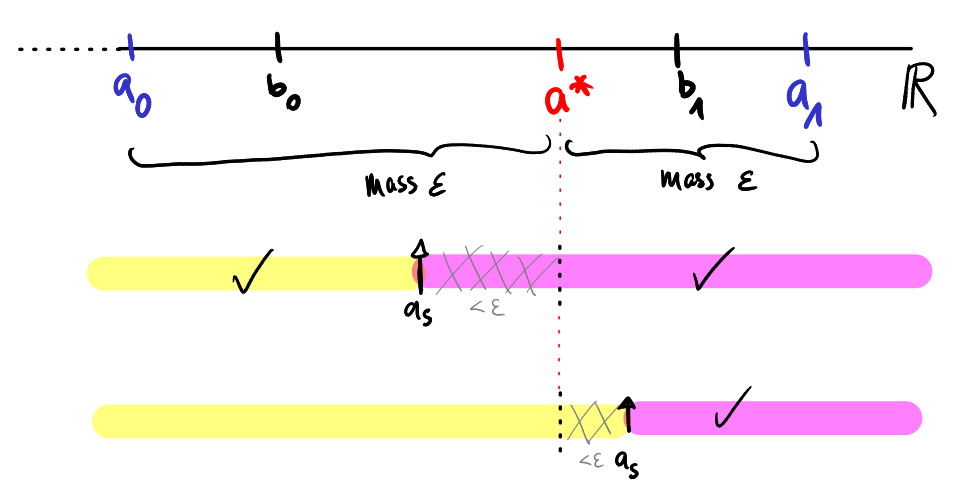 a₀ b₀ a* b₁ a₁ ℝ
mass ε mass ε
✓ ✓
<ε
aₛ
✓
<ε aₛ